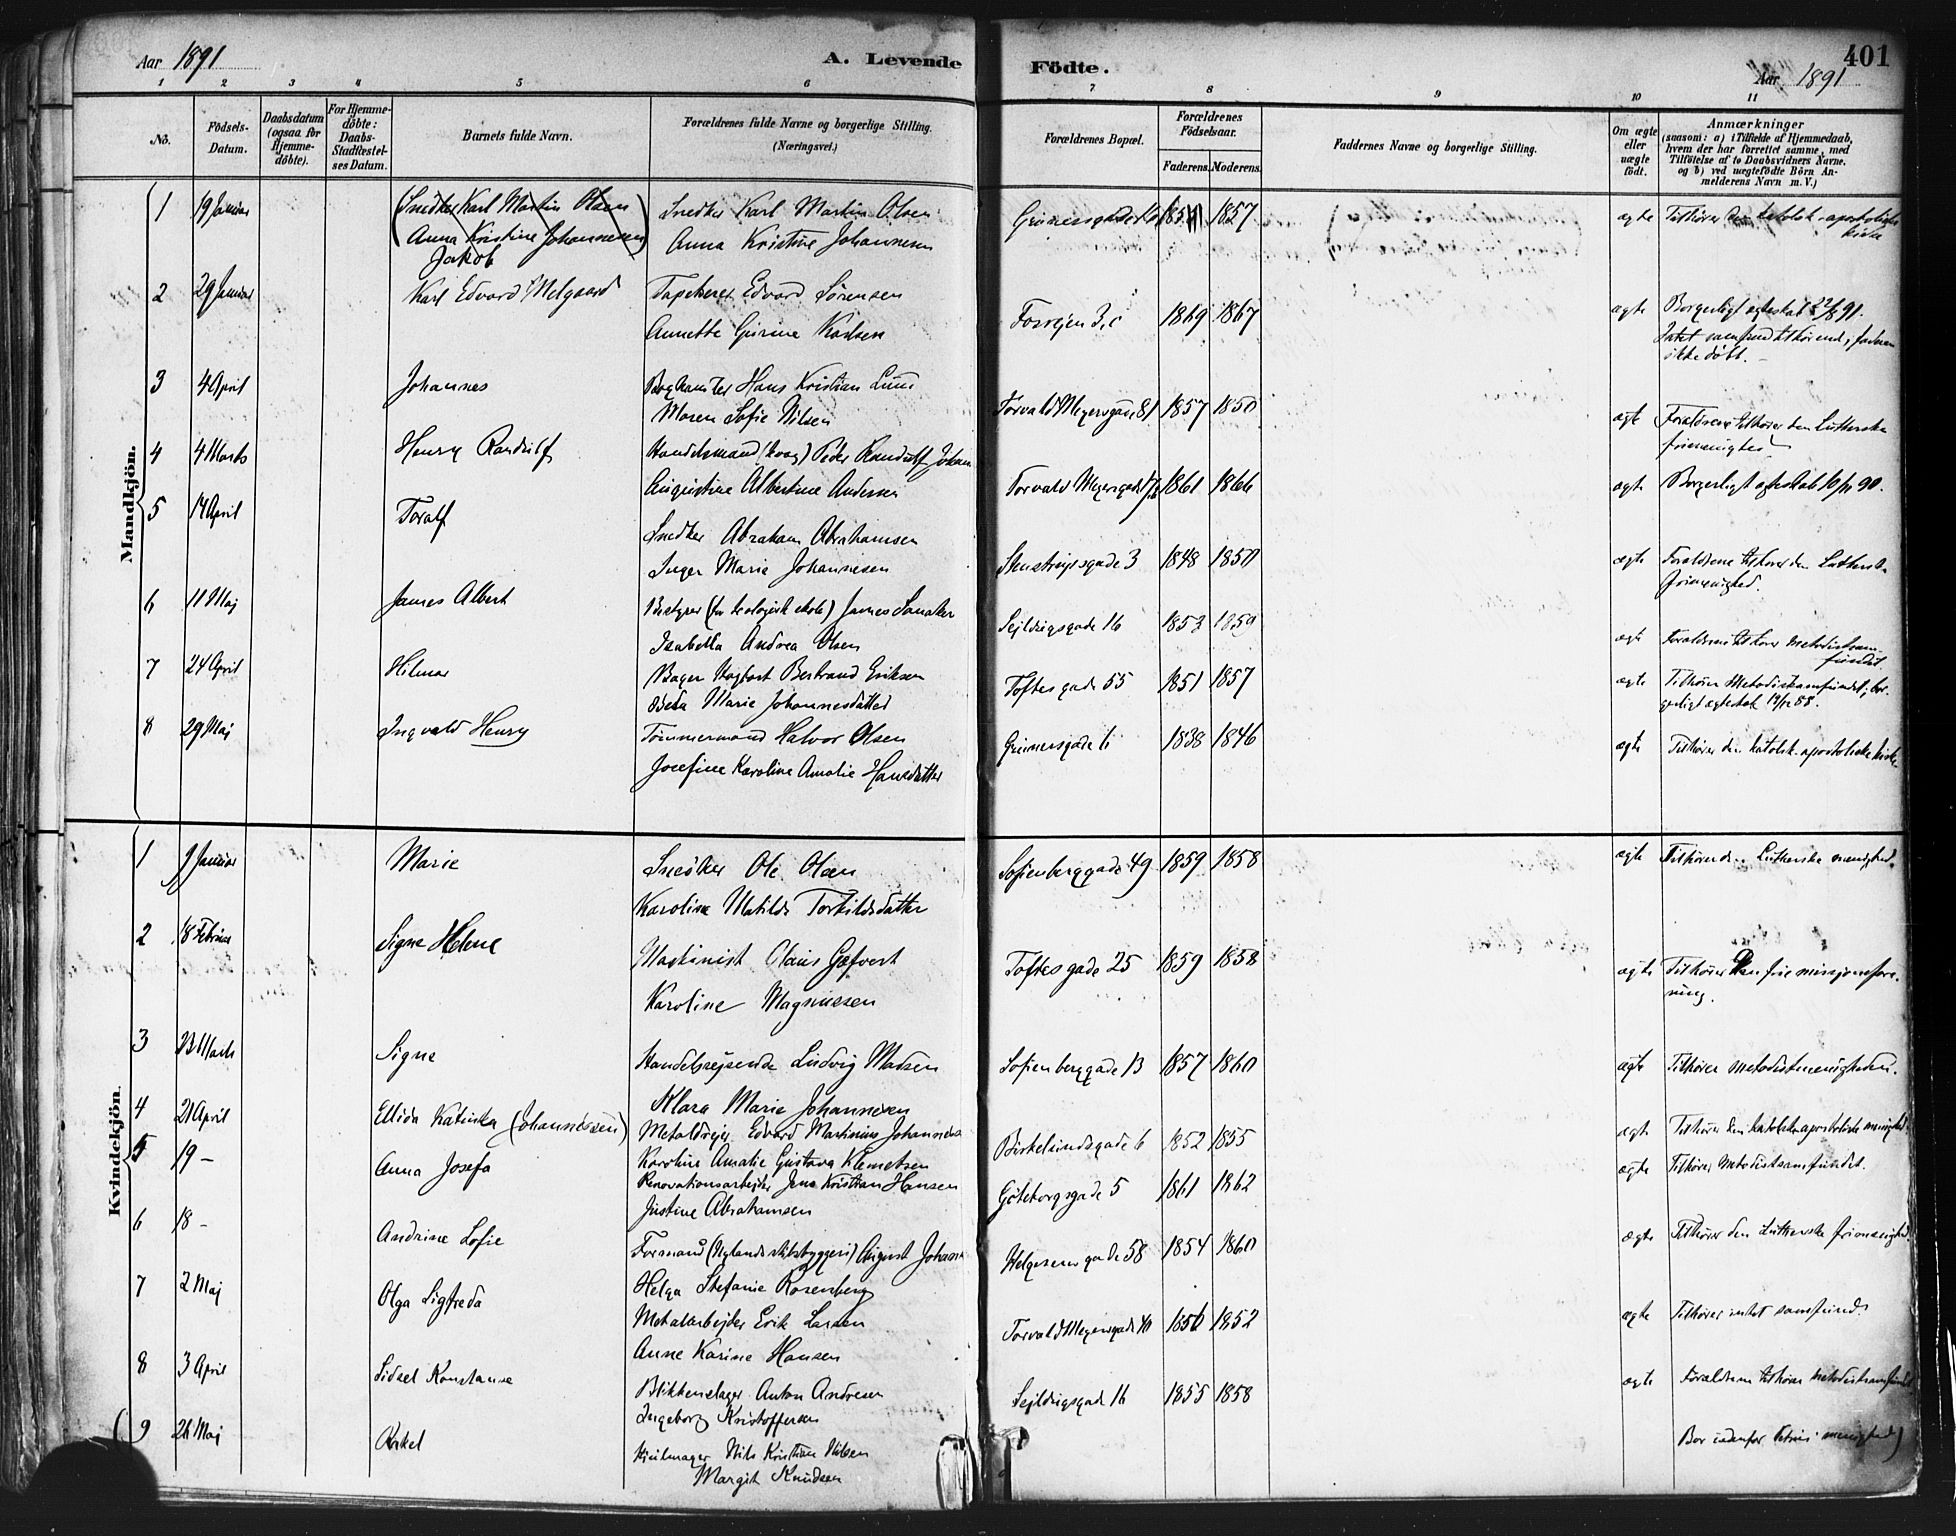 Aar 1891
A. Levende
Födte.
401
Aar 1891
1 2 3 4 5 6 7 8 9 10 11
No.
Födsels-Datum.
Daabsdatum (ogsaa for Hjemme-döbte).
For Hjemme-döbte: Daabs-Stadfæstel-ses Datum.
Barnets fulde Navn.
Forældrenes fulde Navne og borgerlige Stilling. (Næringsvei.)
Forældrenes Bopæl.
Forældrenes Födselsaar.
Faderens.
Moderens.
Faddernes Navne og borgerlige Stilling.
Om ægte eller uægte födt.
Anmærkninger (saasom: a) i Tilfælde af Hjemmedaab, hvem der har forrettet samme, med Tilföielse af to Daabsvidners Navne, og b) ved uægtefödte Börn An-melderens Navn m. V.)
Mandkjön.
1 19 Januar (Snedker Karl Martin Olsen Snedker Karl Martin Olsen Grünersgade 1857 ægte Tilhører den katolsk-apostoliske kirke
Anna Kristine Johannesen) Anna Kristine Johannesen
Jakob
2 29 Januar Karl Edvard Melgaard Tapetserer Edvard Sörensen
Annette Gurine Karlsen 3,c 1869 1867 ægte Borgerligt ægteskab 91.
Intet samfund tilhørende, faderen
ikke döbt.
3 4 April Johannes Hans Kristian
Maren Sofie Nilsen Torvald Meyersgade 81 1857 1850 ægte Forældrene tilhører den Lutherske
frimenighed
4 4 Marts Henry Randulf Handelsmand Peder Randulf Johan
Augustine Albertine Andersen Torvald Meyersgade 1861 1866 ægte Borgerligt ægteskab 90.
5 14 April Toralf Snedker Abraham Abrahamsen
Inger Marie Johannesen 3 1848 1850 ægte Forældrene tilhører den Lutherske
frimenighed.
6 11 Maj James Albert Bestyrer James
Isabella Andrea Olsen Sejldugsgade 16 1853 1859 ægte Forældrene tilhører Metodistsam-
fundet
7 24 April Hilmar Bager Hagbart Bertrand Eriksen
Marie Johannesdatter Toftesgade 55 1851 1857 ægte Tilhører Metodistsamfundet; bor-
gerligt ægteskab 88.
8 29 Maj Ingvald Henry Tømmermand Halvor Olsen
Josefine Karoline Amalie Hansdatter Grünersgade 1838 1846 ægte Tilhører den katolsk-apostoliske kirke
Kvindekjön.
1 9 Januar Marie Snedker Ole Olsen
Karoline Matilde Torkildsdatter Sofienberggade 49 1859 1858 ægte Tilhører den Lutherske menighed.
2 18 Februar Signe Helene Maskinist Claus Gefvert
Karoline Magnussen Toftesgade 25 1859 1858 ægte Tilhører Den frie missjonsfore-
ning.
3 23 Marts Signe Handelsrejsende Ludvig Madsen
Klara Marie Johannesen Sofienberggade 13 1857 1860 ægte Tilhører Metodistmenigheden.
4 21 April Ellida Katinka (Johannessen) Metaldrejer Edvard Martinius Johannesen
Karoline Amalie Gustava Klemetsen Birkelundsgade 6 1852 1855 ægte Tilhører den katolsk-apostoliske menighed.
5 19 – Anna Josefa Renovationsarbejder Jens Kristian Hansen
Justine Abrahamsen Göteborggade 5 1861 1862 ægte Tilhører Metodistsamfundet.
6 18 – Andrine Sofie Formand (Nylands skibsbyggeri) August Johans
Helga Stefanie Rosenberg Helgesensgade 58 1854 1860 ægte Tilhører den Lutherske frimenighed.
7 2 Maj Olga Sigfreda Metalarbejder Erik Larsen
Anne Karine Hansen Torvald Meyersgade 1856 1852 ægte Tilhører intet samfund.
8 3 April Sidsel Konstanse Blikkenslager Anton Andresen
Ingeborg Kristoffersen Sejldugsgade 16 1855 1858 ægte Forældrene tilhører Metodistsamfundet
(9 26 Maj Nils Kristian Nilsen
Margit Knudsen Bor udenfor Petrus menighed)